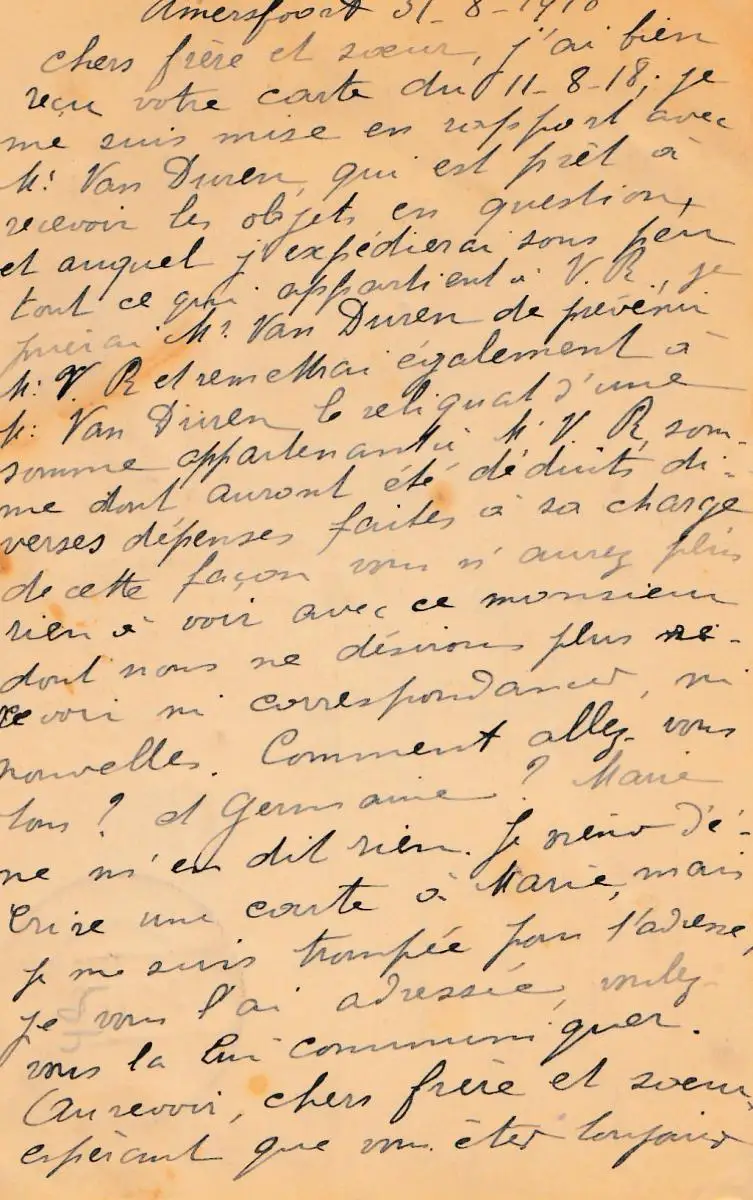 Amersfoort 31-8-1918
chers frère et sœur, j'ai bien
reçu votre carte du 11-8-18; je
me suis mise en rapport avec
Mr Van Duren, qui est prêt à
recevoir les objets en question,
et auquel j'expédierai sous peu
tout ce qui appartient à V. R., je
prierai Mr. Van Duren de prévenir
Mr V R et remettrai également à
Mr Van Duren le reliquat d'une
somme appartenant à Mr V. R., som-
me dont auront été déduits di-
verses dépenses faites à sa charge
de cette façon vous n'aurez plus
rien à voir avec ce monsieur
dont nous ne désirons plus re-
cevoir ni correspondances, ni
nouvelles. Comment allez-vous
tous ? et Germaine ? Marie
ne m'en dit rien. Je viens d'é-
crire une carte à Marie, mais
je me suis trompée pour l'adresse,
je vous l'ai adressée, voulez-
vous la lui communiquer.
Au revoir, chers frère et sœur,
espérant que vous êtes toujours